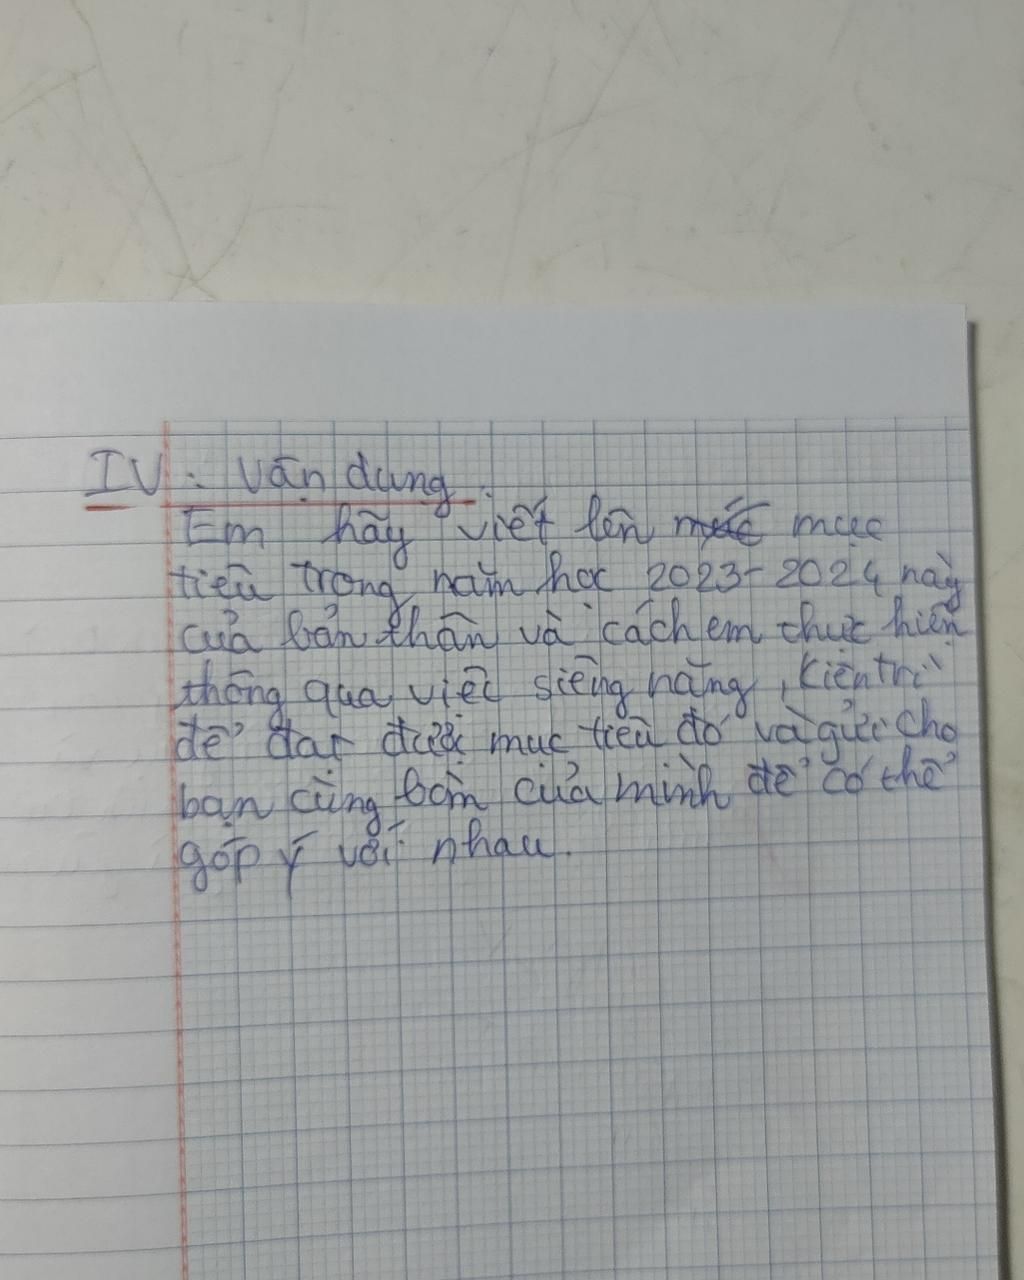 IV: Vận dụng.
Em hãy viết lên mục
tiêu trong năm học 2023-2024 này
của bản thân và cách em thực hiện
thông qua việc siêng năng, kiên trì
để đạt được mục tiêu đó và gửi cho
bạn cùng bàn của mình để có thể
góp ý với nhau.